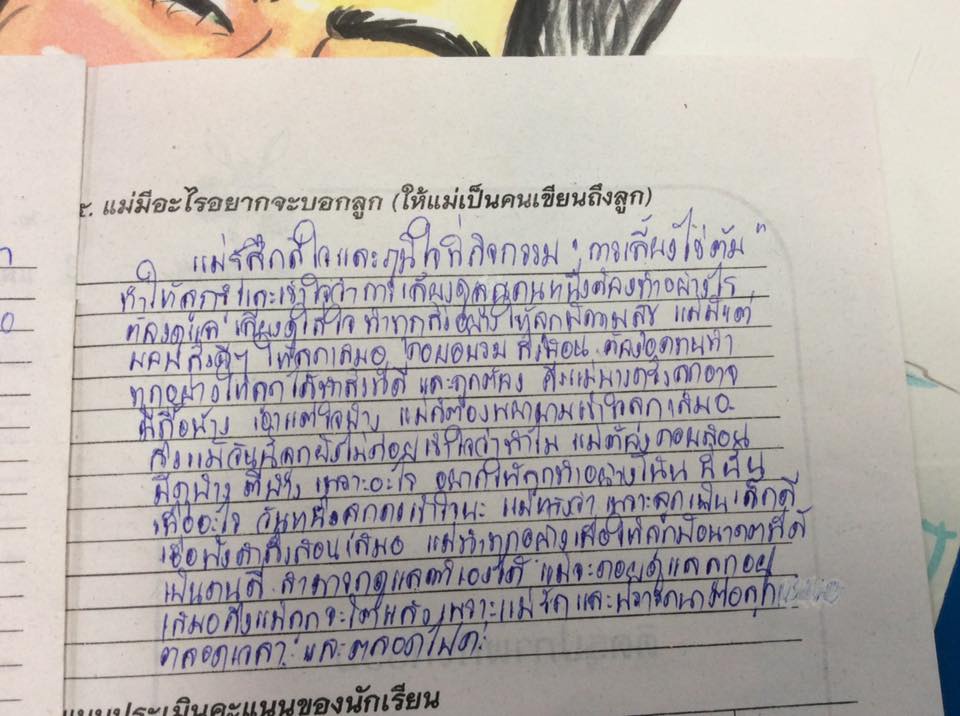 ๕. แม่มีอะไรอยากจะบอกลูก (ให้แม่เป็นคนเขียนถึงลูก)
แม่รู้สึกดีใจและภูมิใจที่กิจกรรม "การเลี้ยงไข่ต้ม"
ทำให้ลูกรู้และเข้าใจว่าการเลี้ยงดูคนคนหนึ่งต้องทำอย่างไร
ต้องดูแล เลี้ยงดู ใส่ใจ ทำทุกสิ่งอย่างให้ลูกมีความสุข แม่มีแต่
มอบสิ่งดีๆ ให้ลูกเสมอ คอยอบรม สั่งสอน ต้องอดทนทำ
ทุกอย่างให้ลูกได้สิ่งที่ดี และถูกต้อง ถึงแม้บางครั้งลูกอาจ
มีดื้อบ้าง เอาแต่ใจบ้าง แม่ก็ต้องพยายามเข้าใจลูกเสมอ
ถึงแม้วันนี้ลูกยังไม่ค่อยเข้าใจว่าทำไม แม่ต้องคอยสอน
มีดุบ้าง ตีบ้าง เพราะอะไร อยากให้ลูกทำอย่างโน้น นี้ นั้น
เพื่ออะไร วันหนึ่งลูกคงเข้าใจนะ แม่ทราบว่า เพราะลูกเป็นเด็กดี
เชื่อฟังคำสั่งสอนเสมอ แม่ทำทุกอย่างเพื่อให้ลูกมีอนาคตที่ดี
เป็นคนดี สามารถดูแลตัวเองได้ แม่จะคอยดูแลลูกอยู่
เสมอถึงแม้ลูกจะโตแล้ว เพราะแม่รักและปรารถนาดีต่อลูก
ตลอดเวลา และตลอดไปค่ะ
แบบประเมินคะแนนของนักเรียน